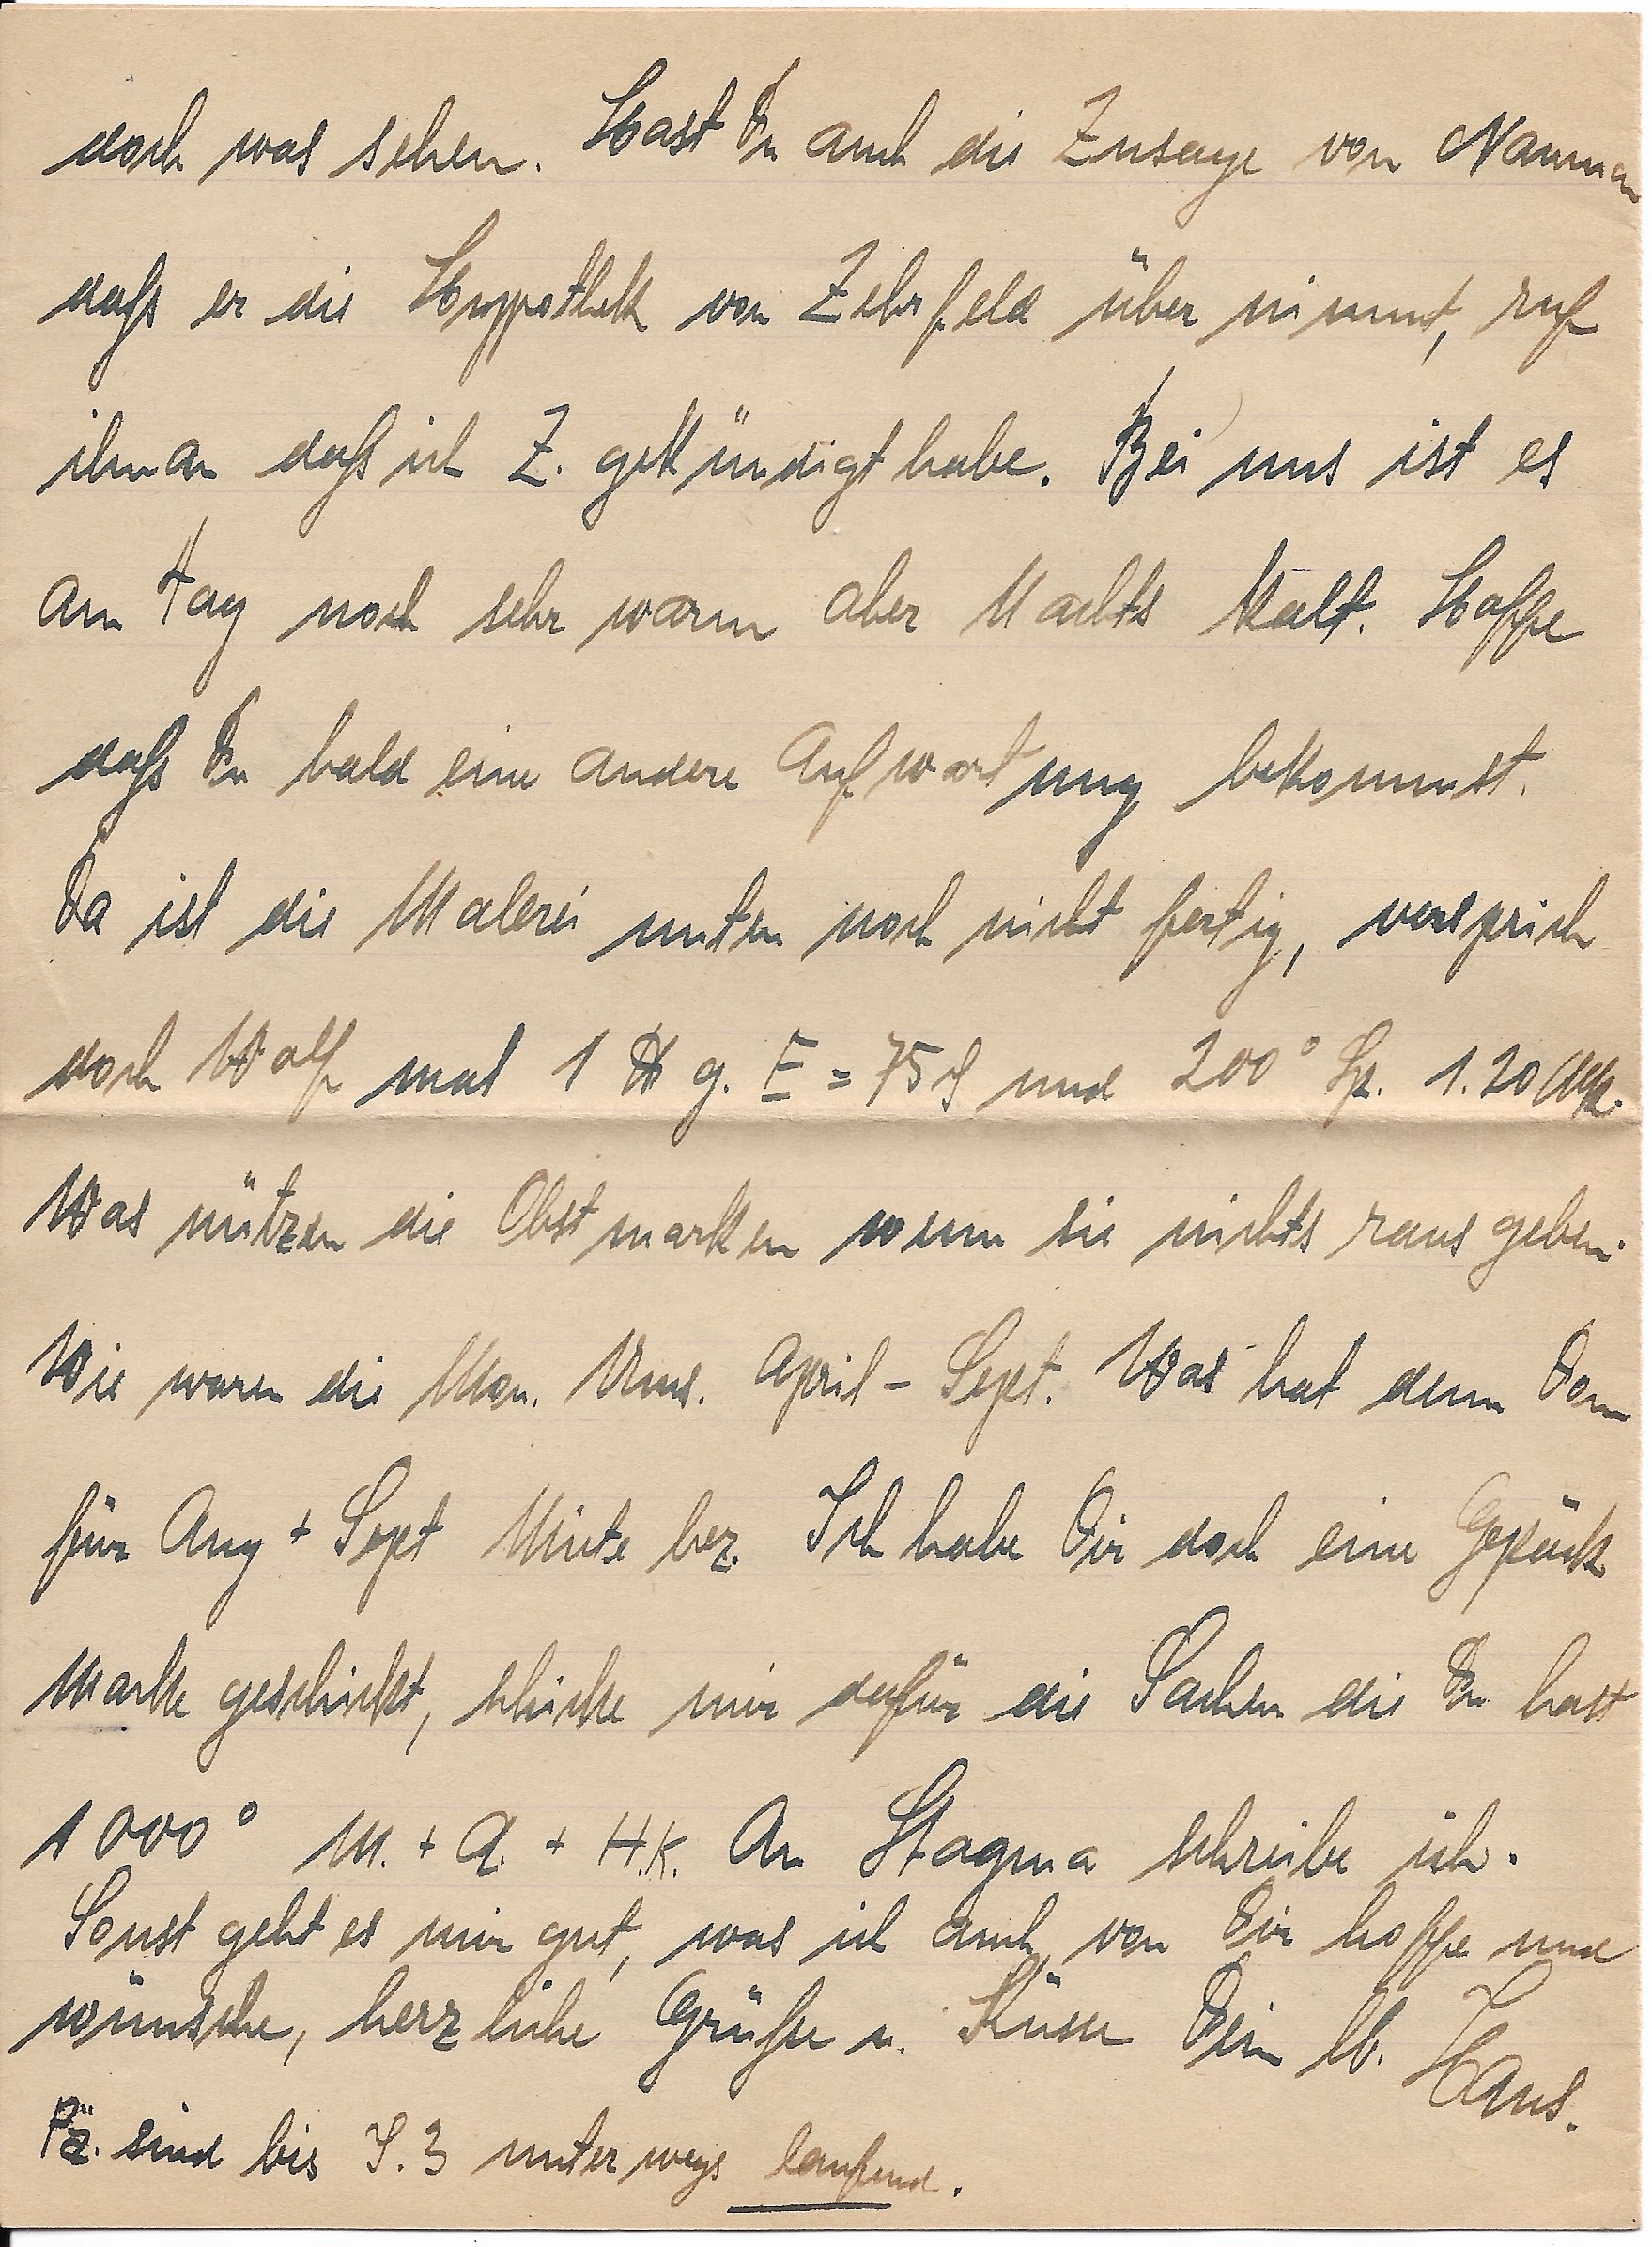 doch was sehen. Hast Du auch die Zusage von Nauman
daß er die Hyppothek von Zehrfeld über nimmt, ruf
ihn an daß ich Z. gekündigt habe. Bei uns ist es
am Tag noch sehr warm aber Nachts kalt. Hoffe
daß Du bald eine andere Aufwartung bekommst.
Da ist die Malerei unten noch nicht fertig, versprich
doch Wolf mal 1 ℔ g. E = 75 ₰ und 200° Sp. 1.20 Mk.
Was nützen die Obstmarken wenn sie nichts raus geben.
Wie waren die Mon. Ums. April - Sept. Was hat denn Dom
für Aug + Sept Miete bez. Ich habe Dir doch eine Gepäck
Marke geschickt, schicke mir dafür die Sachen die Du hast
1000° M. + A. + H.K. An Stagma schreibe ich.
Sonst geht es mir gut, was ich auch von Dir hoffe und
wünsche, herzliche Grüße u. Küsse Dein lb. Hans.
Pä. sind bis J. 3 unterwegs laufend.